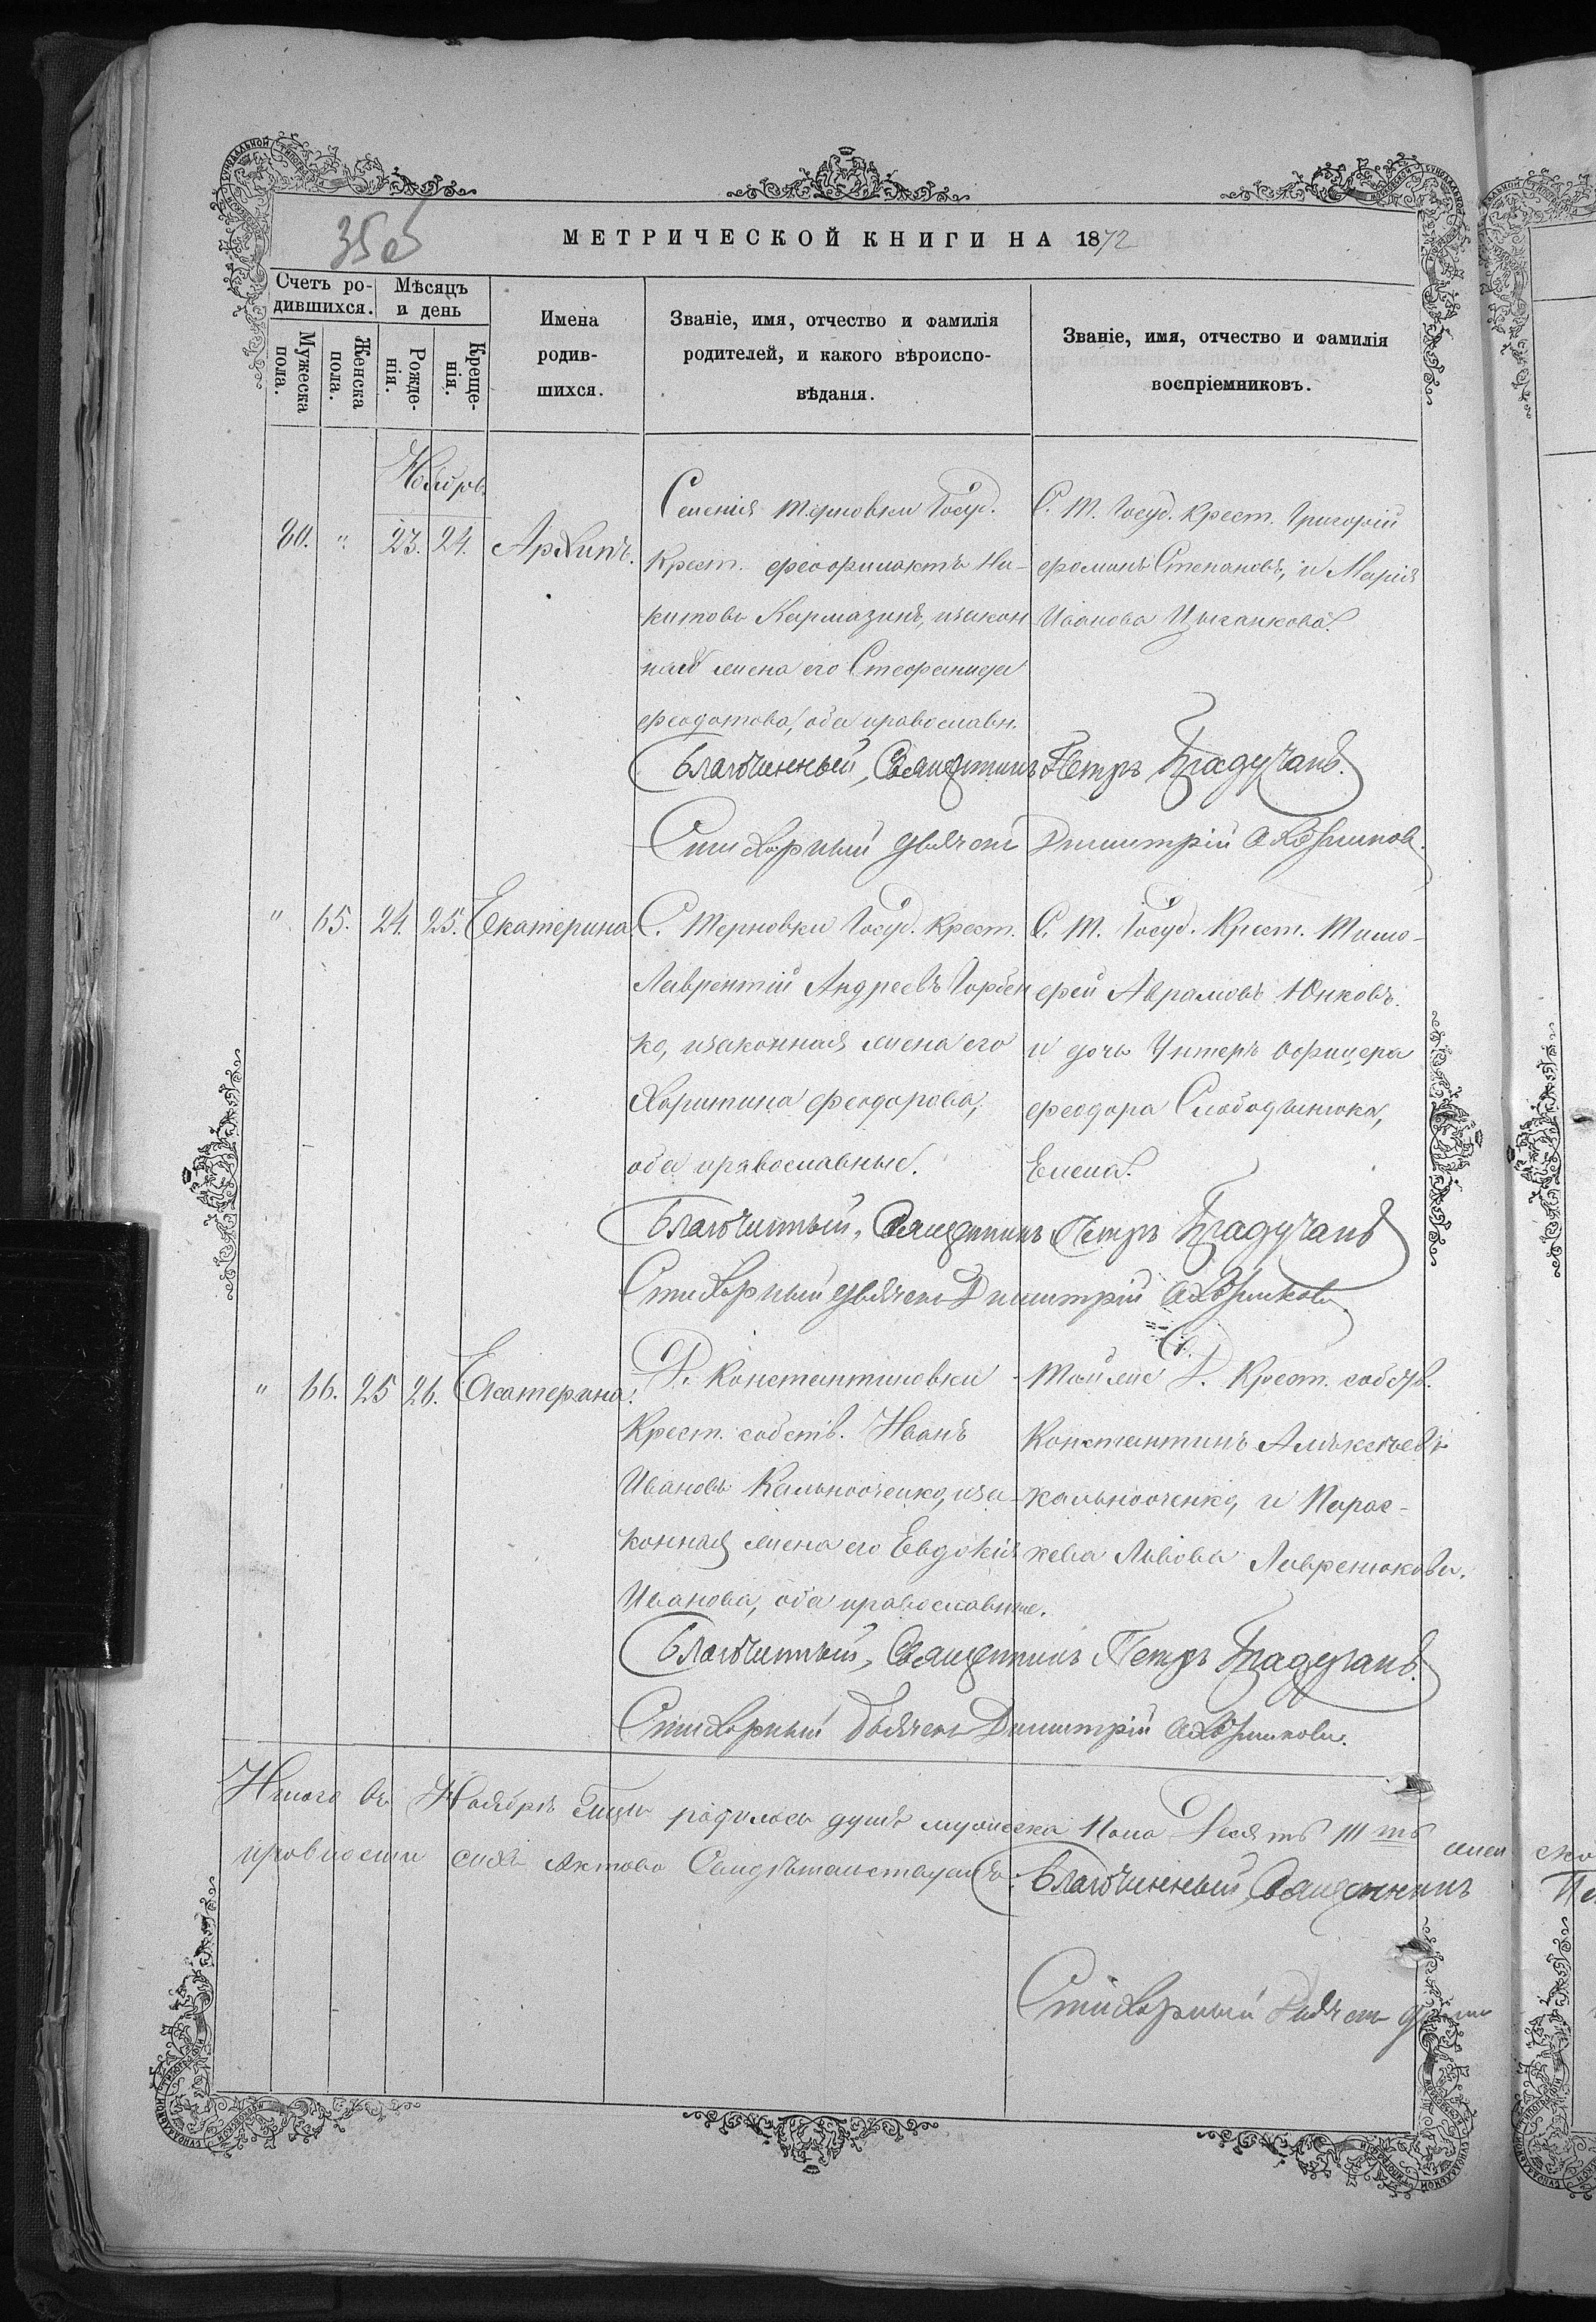 35об
МЕТРИЧЕСКОЙ КНИГИ НА 1872
Счетъ ро-
дившихся.
Мѣсяцъ
и день
Мужеска
пола.
Женска
пола.
Рожде-
нія.
Креще-
нія.
Имена
родив-
шихся.
Званіе, имя, отчество и фамилія
родителей, и какого вѣроиспо-
вѣданія.
Званіе, имя, отчество и фамилія
воспріемниковъ.
Ноябрь
80. " 23. 24. Архипъ.
Селенія Терновки Госуд.
Крест. Феофилактъ Ни-
китовъ Кармазинъ, изакон
ная жена его Стефанида
Феодотова, оба православн.
С. Т. Госуд. Крест. Григорій
Іванова Цыганкова.
Благочинный, Священникъ Петръ Брадучанъ.
Стихарный дьячекъ Димитрій
" 65. 24. 25. Екатерина
С. Терновки Госуд. Крест.
Лаврентій Андреевъ Горбен
ко, изаконная жена его
Харитина Феодорова,
оба православные.
С. Т. Госуд. Крест. Тимо-
фей Аврамовъ Юнковъ.
и дочь Унтеръ Офицера
Феодора Слободянюка,
Елена.
Благочинный, Священникъ Петръ Брадучанъ
Стихарный дьячекъ Димитрій
" 66. 25 26. Екатерина.
Д. Константиновки
Крест. собств. Иванъ
Ивановъ Кальниоченко, иза-
конная жена его Евдокія
Иванова, оба православные.
Той же Д. Крест. собств.
Константинъ Алексѣевъ
Кальниоченко, и Парас-
кева Львова Лавренюкова.
Благочинный, Священникъ Петръ Брадучанъ.
Стихарный Дьячекъ Димитрій
Итого въ Ноябрѣ родилось душъ мужеска Пола Десять
Благочинный, Священникъ
Стихарный Дьячекъ